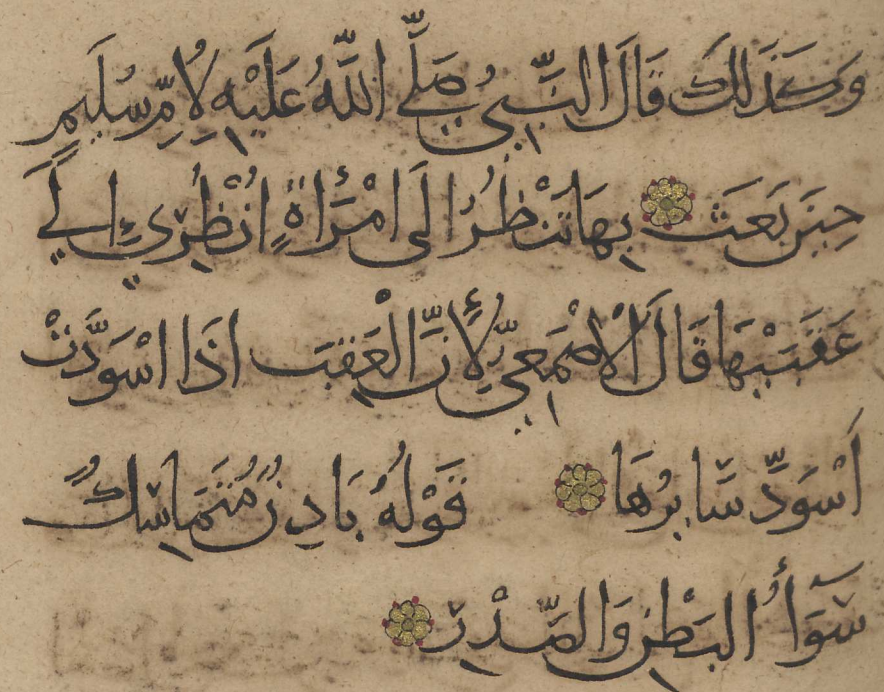 وَكَذَلِكَ قَالَ النَّبِيُّ صَلَّى اللَّهُ عَلَيْهِ لِأُمِّ سُلَيْمٍ
حِينَ بَعَثَ بِهَا تَنْظُرُ الَى امْرَأَةٍ انْظُرِي الَى
عَقِبَيْهَا قَالَ الْاصْمَعِيُّ لِأَنَّ الْعَقِبَ اذَا اسْوَدَّتْ
اَسْوَدَّ سَايِرُهَا قَوْلُهُ بَادِنٌ مُتَمَاسِكٌ
سَوَآءُ البَطْنِ وَالصَّدْرِ